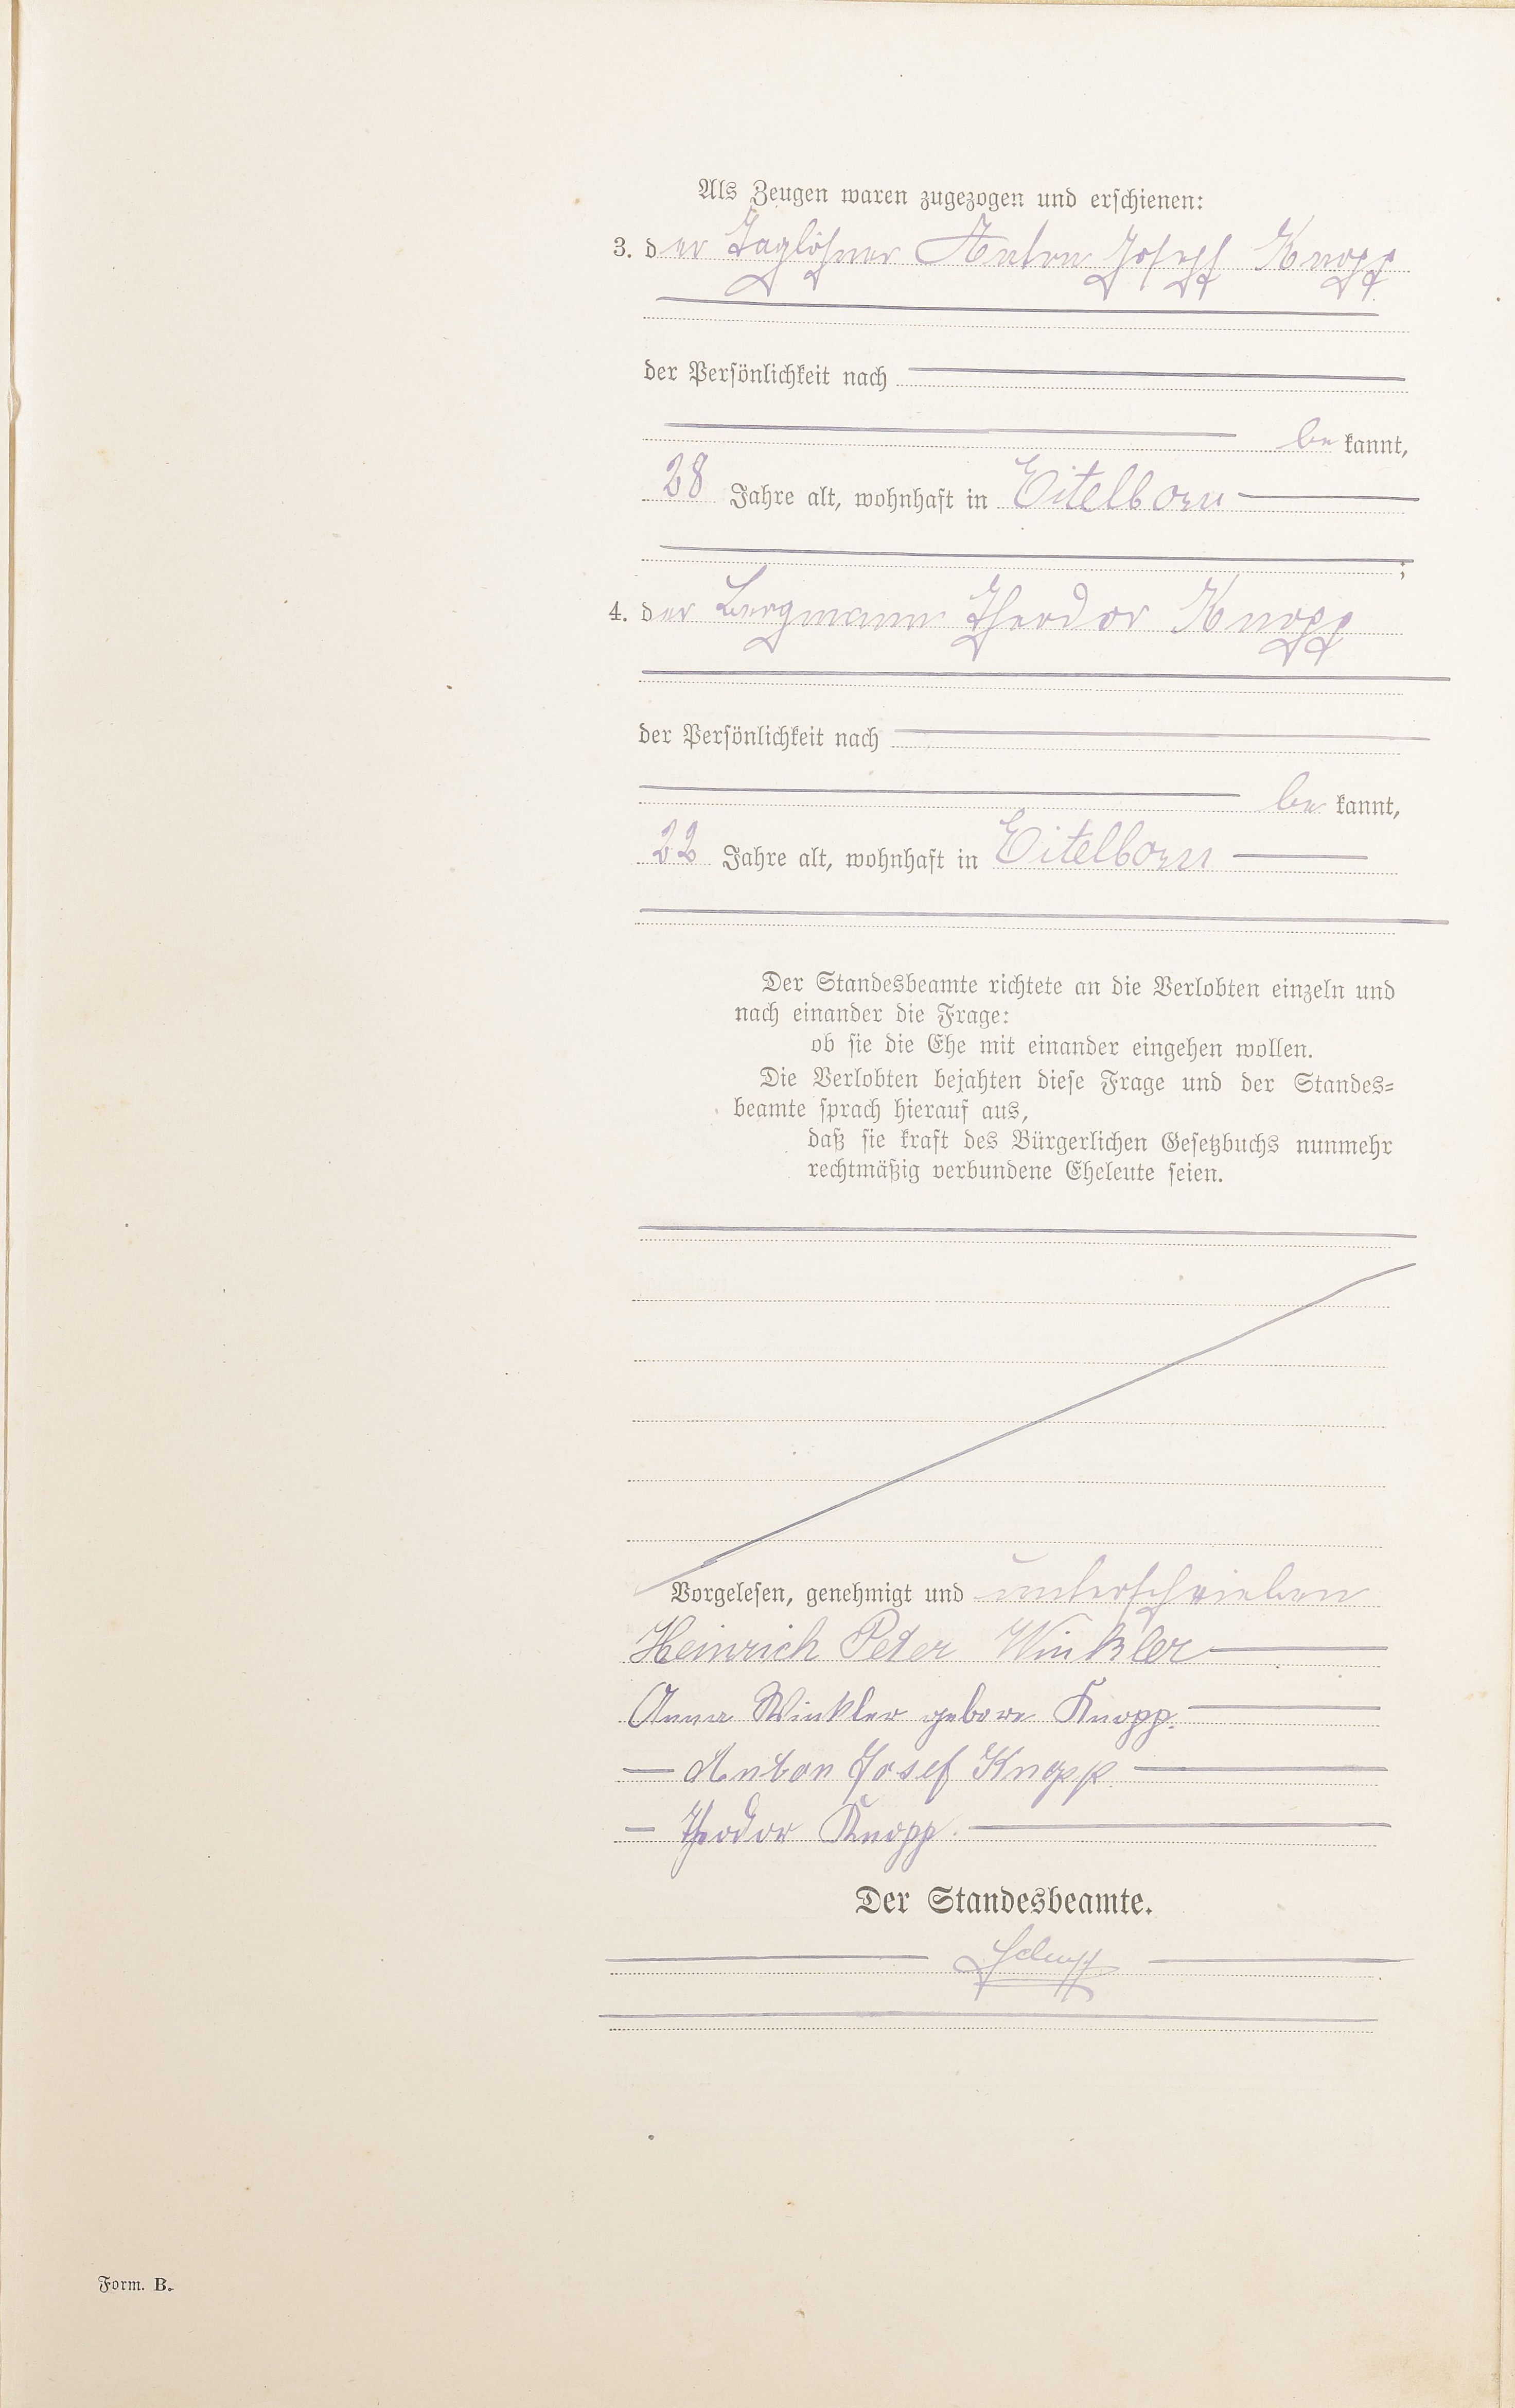 Als Zeugen waren zugezogen und erschienen:
3. der Taglöhner Anton Joseph Knopp
der Persönlichkeit nach
be kannt,
28 Jahre alt, wohnhaft in Eitelborn
;
4. der Bergmann Theodor Knopp
der Persönlichkeit nach
be kannt,
22 Jahre alt, wohnhaft in Eitelborn
Der Standesbeamte richtete an die Verlobten einzeln und
nach einander die Frage:
ob sie die Ehe mit einander eingehen wollen.
Die Verlobten bejahten diese Frage und der Standes=
beamte sprach hierauf aus,
daß sie kraft des Bürgerlichen Gesetzbuchs nunmehr
rechtmäßig verbundene Eheleute seien.
Vorgelesen, genehmigt und unterschrieben
Heinrich Peter Winkler
Anna Winkler gebore Knopp.
Anton Josef Knopp
Theodor Knopp.
Der Standesbeamte.
Form. B.